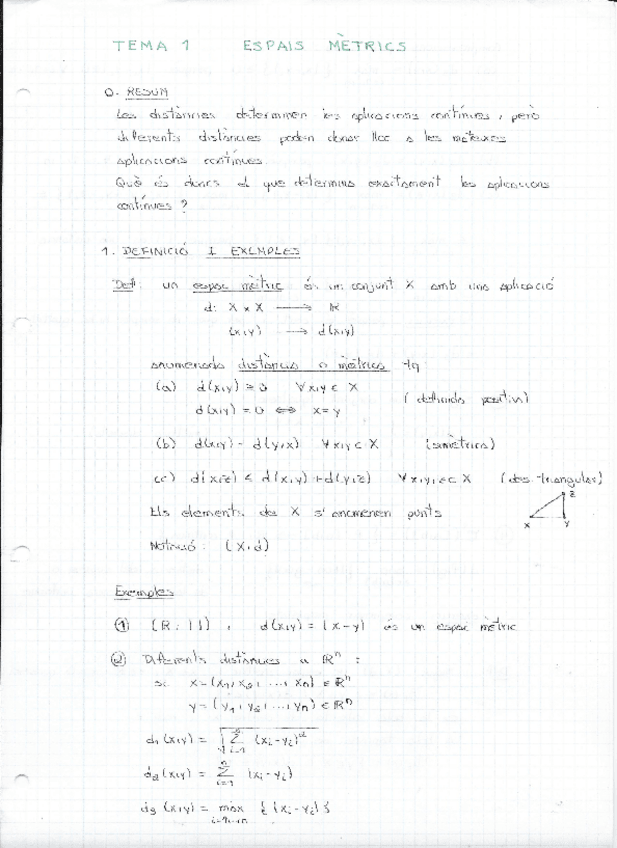 TEMA 1 ESPAIS MÈTRICS
0. RESUM
Les distàncies determinen les aplicacions contínues, però
diferents distàncies poden donar lloc a les mateixes
aplicacions contínues.
Què és doncs el que determina exactament les aplicacions
contínues?
1. DEFINICIÓ I EXEMPLES
Def: un espai mètric és un conjunt X amb una aplicació
d: X × X ⟶ ℝ
(x,y) ⟶ d(x,y)
anomenada distància o mètrica tq
(a) d(x,y) ≥ 0 ∀x,y ∈ X
(definida positiva)
d(x,y) = 0 ⇔ x = y
(b) d(x,y) = d(y,x) ∀x,y ∈ X (simètrica)
(c) d(x,z) ≤ d(x,y) + d(y,z) ∀x,y,z ∈ X (des. triangular)
Els elements de X s'anomenen punts
x y z
Notació: (X,d)
Exemples
① (ℝ, | |), d(x,y) = |x-y| és un espai mètric
② Diferents distàncies a ℝⁿ:
si x = (x₁, x₂, ..., xₙ) ∈ ℝⁿ
y = (y₁, y₂, ..., yₙ) ∈ ℝⁿ
d₁(x,y) = √(∑ᵢ₌₁ⁿ (xᵢ-yᵢ)²)
d₂(x,y) = ∑ᵢ₌₁ⁿ |xᵢ-yᵢ|
d₃(x,y) = màx i=1,...,n {|xᵢ-yᵢ|}